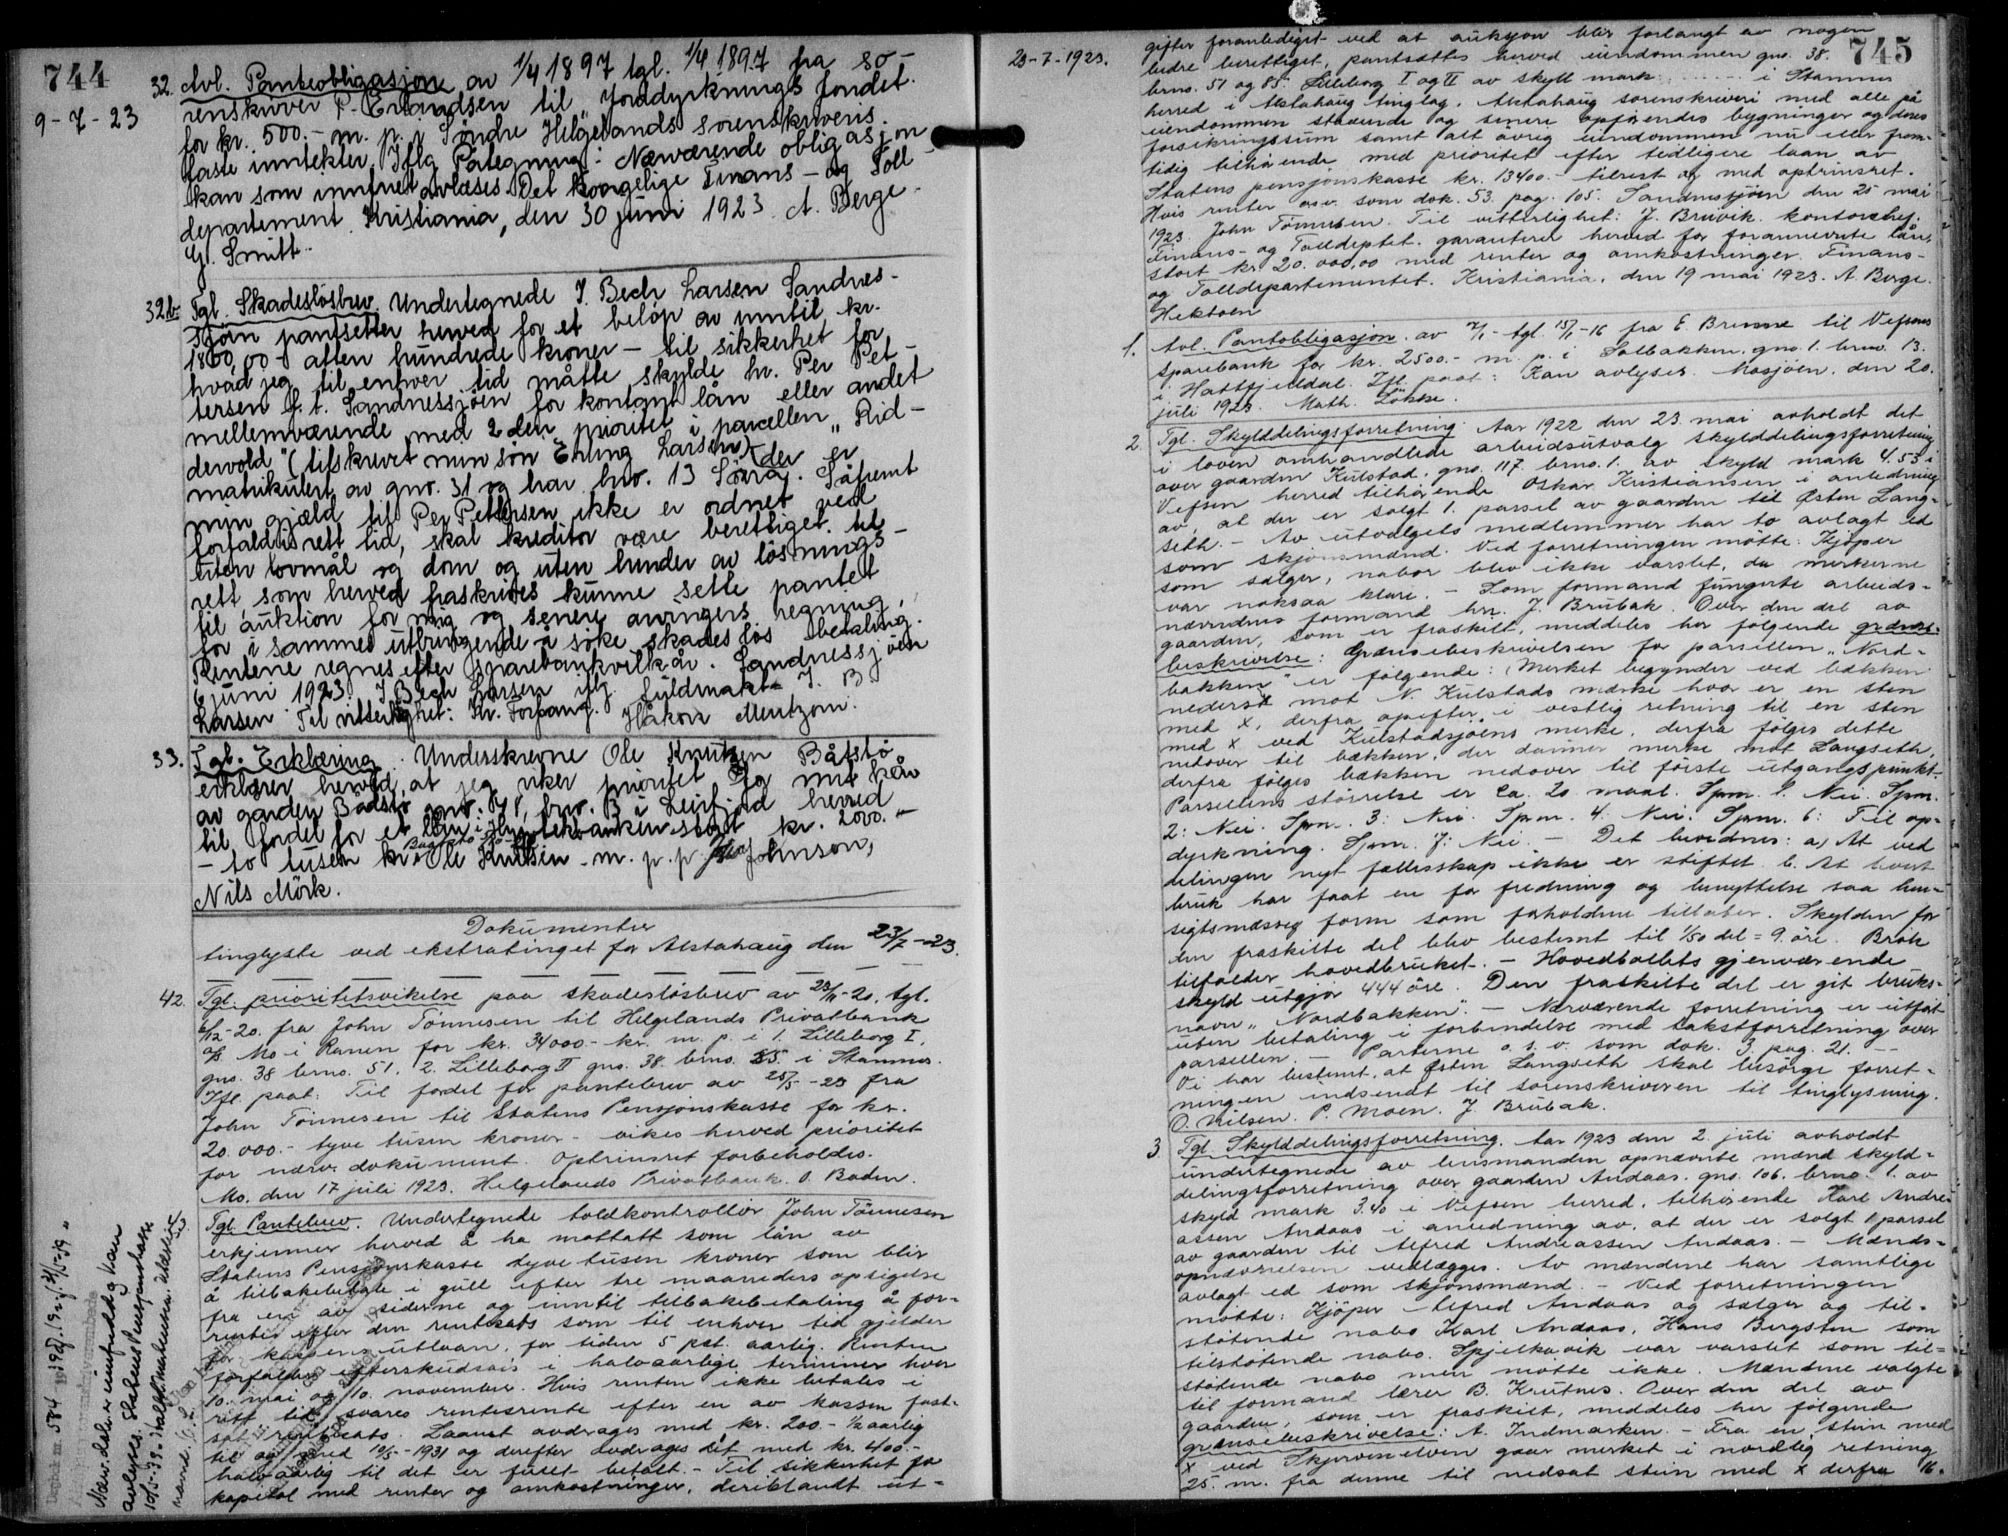 744
9-7-23
32. Avl. Panteobligasjon av 1/4 1897 tgl. 1/4 1897 fra so-
renskriver P. Erlandsen til "Jorddyrknings fondet
for kr. 500.- m. p. i Söndre Helgelands sorenskriveris
faste inntekter. Iflg Påtegning: Nærværende obligasjon
kan som innfriet avlæses. Det kongelige Finans- og Toll-
departement. Kristiania, den 30 juni 1923. A. Berge.
G. Smitt.
32b. Tgl. Skadeslösbrev. Undertegnede J. Bech Larsen Sandnes-
sjöen pantsetter herved for et belöp av inntil kr.
1800,00 - atten hundrede kroner - til sikkerhet for
hvad jeg til enhver tid måtte skylde hr. Per Pet-
tersen f. t. Sandnessjöen for kontant lån eller andet
mellemværende med 2den prioritet i parcellen "Rid-
dervold" (tilskrevet min sön Erling Larsen) der er
matrikulert av gnr. 31 og har bnr. 13 Sörra. Såfremt
min gjæld til Per Pettersen ikke er ordnet ved
forfald i rett tid, skal kreditor være berettiget til
uten lovmål og dom og uten hinder av lösnings-
rett som herved fraskrives kunne sette pantet
til auktion for mig og senere arvingers regning,
for i sammes utbringende å söke skadeslös betaling.
Rentene regnes efter sparebankvilkår. Sandnessjöen
6 juni 1923. J. Bech Larsen iflg. fuldmakt J. B.
Larsen. Til vitterlighet: Kr. Forfang. Håkon Mentzoni.
33. Tgl. Erklæring. Underskrevne Ole Knutsen Båtstö
erklærer herved, at jeg viker prioritet for mit kår
av gården Båtstö gnr. 81, bnr. 3 i Leirfjord herred
til fordel for et lån i Hypotekbanken stort kr. 2000.-
- to tusen kr. Ole Knutsen m. p. p. Johnson,
Nils Mörk.
Dokumenter
tinglyste ved ekstratinget for Alstahaug den 23/7-23.
42. Tgl. prioritetsvikelse paa skadeslösbrev av 23/11-20, tgl.
6/12-20. fra John Tönnesen til Helgelands Privatbank
A/S Mo i Ranen for kr. 34000.- kr. m. p. i 1. Lilleborg I,
gno. 38 brno. 51. 2. Lilleborg II gno. 38. brno. 85 i Stamnes.
Ifl. paat. Til fordel for pantebrev av 25/5-23 fra
John Tönnesen til Statens Pensjonskasse for kr.
20.000.- tyve tusen kroner - vikes herved prioritet
for nærv. dokument. Optrinsret forbeholdes.
Mo. den 17 juli 1923. Helgelands Privatbank. O. Baden.
43. Tgl. Pantebrev. Undertegnede toldkontrollör John Tönnesen
erkjenner herved å ha mottatt som lån av
Statens Pensjonskasse tyve tusen kroner som blir
å tilbakebetale i gull efter tre maaneders opsigelse
fra en av siderne og inntil tilbakebetaling å for-
rentes efter den rentesats som til enhver tid gjelder
for kassens utlaan, for tiden 5 pst. aarlig. Renten
forfalder efterskudsvis i halvaarlige terminer hver
10. mai og 10. november. Hvis renten ikke betales i
rett tid svares rentesrente efter en av kassen fast-
sat rentesats. Laanet avdrages med kr. 200.- 1/2 aarlig
til og med 10/5-1931 og derefter avdrages det med kr. 400.-
halvaarlig til det er fuldt betalt. - Til sikkerhet for
kapital med renter og omkostninger, deriblandt ut-
Nærv. dok. er innfridd og kan
avlyses. Statens Pensjonskasse
745
23-7-1923.
gifter foranlediget ved at auksjon blir forlangt av nogen
bedre berettiget, pantsættes herved eiendommen gno. 38.
brno. 51 og 85. Lilleborg I og II av skyld mark ........ i Stamnes
herred i Alstahaug tinglag, Alstahaug sorenskriveri med alle på
eiendommen stående og senere opförendes bygninger og deres
forsikringssum samt alt övrig eiendommen nu eller frem-
tidig tilhörende med prioritet efter tidligere laan av
Statens pensjonskasse kr. 13400.- tilrest og med optrinsret.
Hvis renter o.s.v. som dok. 53. pag. 105. Sandnessjöen den 25 mai
1923 John Tönnesen. Til vitterlighet: J. Bruvik. kontorchef.
Finans- og Tolldeptet. garanterer herved for forannevnte lån,
stort kr. 20.000,00 med renter og omkostninger. Finans-
og Tolldepartementet. Kristiania, den 19 mai 1923. A. Berge.
Hektoen
1. Avl. Pantobligasjon. av 7/1- tgl. 15/1-16 fra E Bremse til Vefsens
sparebank for kr. 2500.- m. p. i Solbakken, gno. 1. brno. 13.
i Hattfjelldal. Ifl. paat: Kan avlyses. Mosjöen, den 20.
juli 1923. Math. Löhre.
2. Tgl. Skylddelingsforretning. Aar 1922 den 23. mai avholdt det
i loven omhandlede arbeidsutvalg skylddelingsforretning
over gaarden Kulstad, gno. 117. brno. 1. av skyld mark 4.53 i
Vefsen herred tilhörende Oskar Kristiansen i anledning
av, at der er solgt 1. parsel av gaarden til Østen Lang-
seth. - Av utvalgets medlemmer har to avlagt ed
som skjönsmænd. Ved forretningen mötte: Kjöper
som sælger, nabor blev ikke varslet, da merkerne
var noksaa klare. - Som formand fungerte arbeids-
nævndens formand hr. J. Brubak. Over den del av
gaarden, som er fraskilt, meddeles her fölgende grænse-
beskrivelse: Grænsebeskrivelsen for parsellen "Nord-
bakken" er fölgende: Merket begynder ved bækken
nederst mot N. Kulstads mærke hvor er en sten
med x, derfra opefter i vestlig retning til en sten
med x ved Kulstadsjöens merke, derfra fölges dette
nedover til bækken, der danner merke mot Langseth,
derfra fölges bækken nedover til förste utgangspunkt.
Parsellens störrelse er ca. 20 maal. Spm. 1. Nei. Spm.
2: Nei. Spm. 3: Nei. Spm. 4: Nei. Spm. 6: Til op-
dyrkning. Spm. 7: Nei. - Det bevidnes: a) At ved
delingen nyt fællesskap ikke er stiftet. b. At hvert
bruk har faat en for fredning og benyttelse saa hen-
sigtsmæssig form som forholdene tillater. Skylden for
den fraskilte del blev bestemt til 1/50 del = 9. öre. Brök
tilfalder hovedbruket. - Hovedbölets gjenværende
skyld utgjör 444 öre. Den fraskilte del er git bruks-
navn "Nordbakken". - Nærværende forretning er utfört
uten betaling i forbindelse med takstforretning over
parsellen. - Parterne o. s. v. som dok. 3 pag. 21. -
Vi har bestemt, at Østen Langseth skal besörge forret-
ningen indsendt til sorenskriveren til tinglysning.
O. Nilsen. P. Moen. J. Brubak.
3. Tgl. Skylddelingsforretning. Aar 1923 den 2. juli avholdt
undertegnede av lensmanden opnævnte mænd skyld-
delingsforretning over gaarden Andaas. gno. 106. brno. 1. av
skyld mark 3.40 i Vefsen herred, tilhörende Karl Andre-
assen Andaas i anledning av, at der er solgt 1 parsel
av gaarden til Alfred Andreassen Andaas. - Mænds-
opnævnelsen vedlægges. Av mændene har samtlige
avlagt ed som skjönsmænd. - Ved forretningen
mötte: Kjöper Alfred Andaas og sælger og til-
stötende nabo Karl Andaas, Hans Bergsten som
tilstötende nabo. Spjelkavik var varslet som til-
stötende nabo men mötte ikke. Mændene valgte
til formand lærer B. Krutnes. Over den del av
gaarden, som er fraskilt, meddeles her fölgende
grænsebeskrivelse: A. Indmarken. - Fra en sten med
x ved Skjerven elven gaar merket i nordlig retning
25. m. fra denne til nedsat stein med x derfra 16.